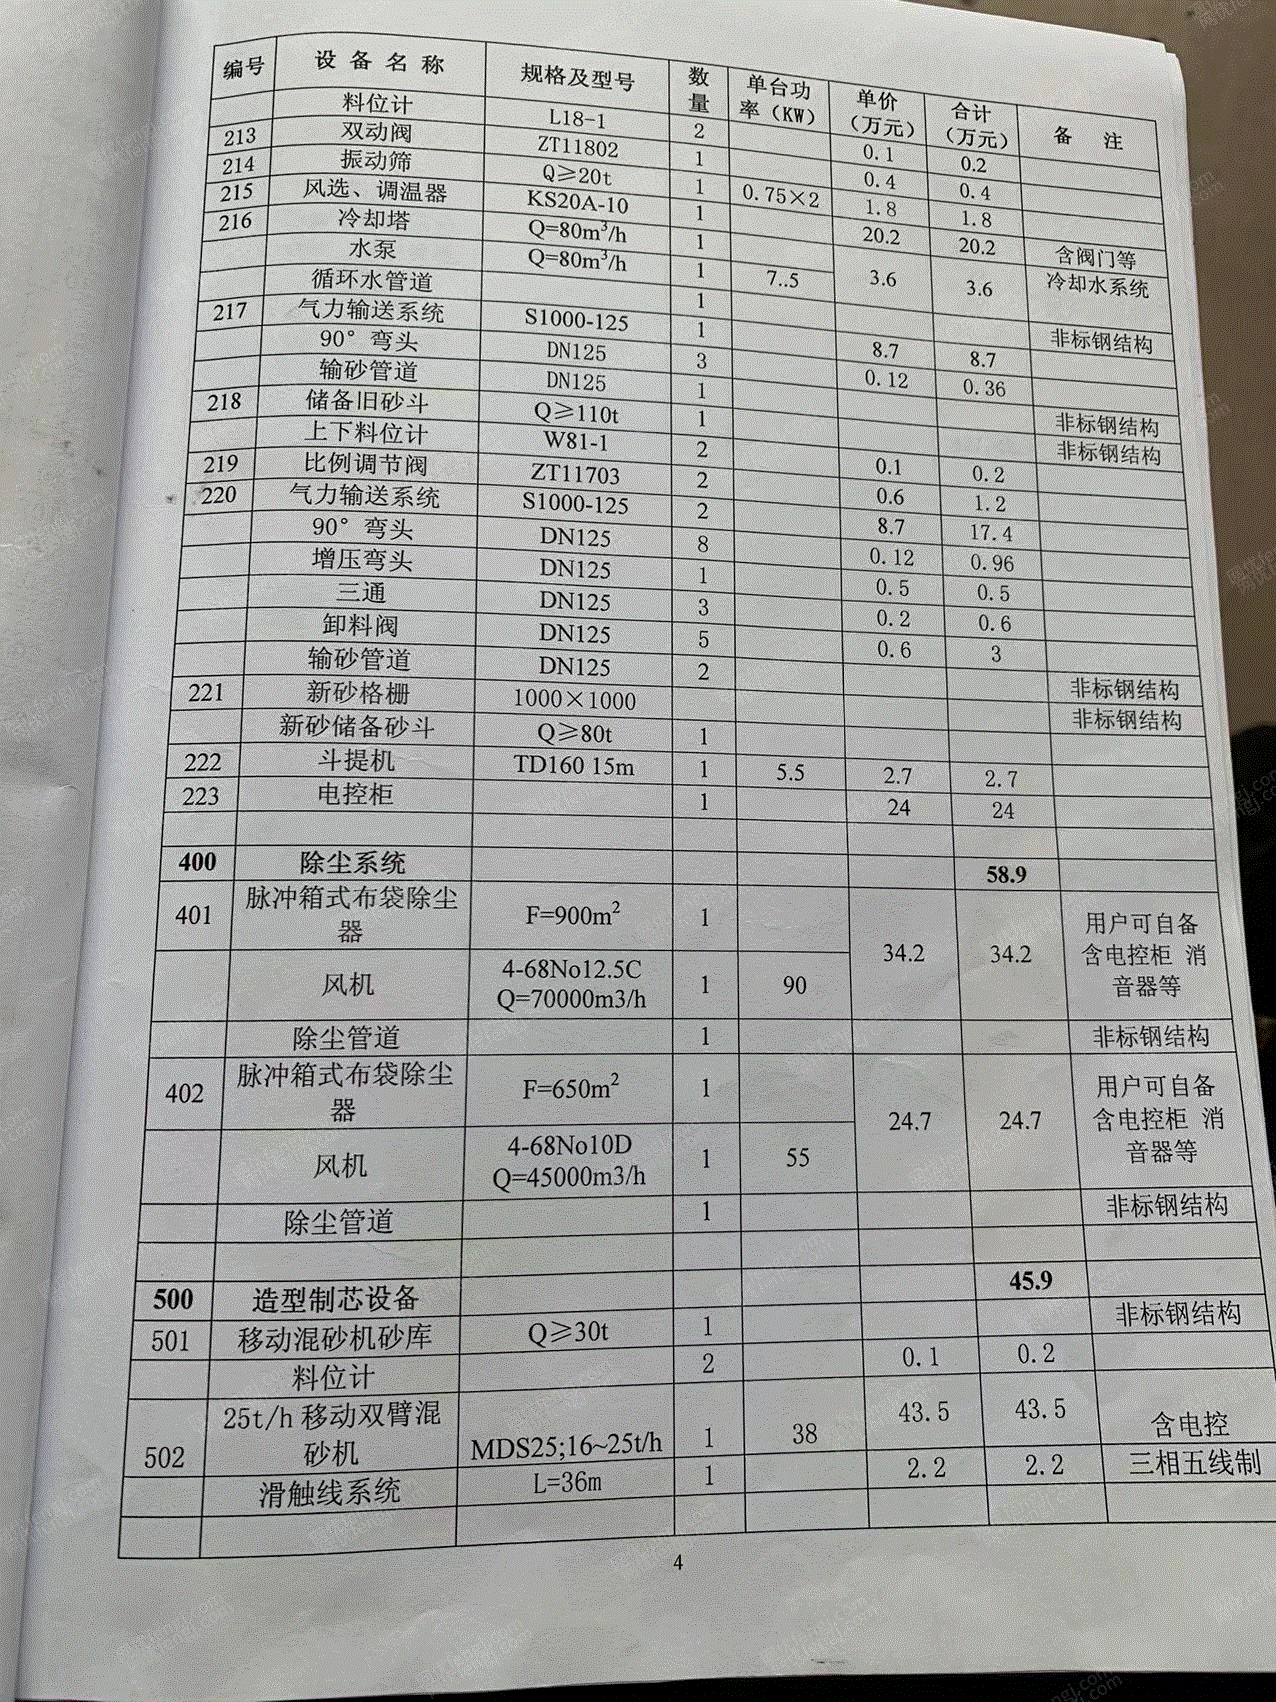 编号 设 备 名 称 规格及型号 数量 单台功率（KW） 单价（万元） 合计（万元） 备 注
料位计 L18-1 2 0.1 0.2
213 双动阀 ZT11802 1 0.4 0.4
214 振动筛 Q≥20t 1 0.75×2 1.8 1.8
215 风选、调温器 KS20A-10 1 20.2 20.2 含阀门等
216 冷却塔 Q=80m³/h 1 3.6 3.6 冷却水系统
水泵 Q=80m³/h 1 7..5
循环水管道 1 非标钢结构
217 气力输送系统 S1000-125 1 8.7 8.7
90° 弯头 DN125 3 0.12 0.36
输砂管道 DN125 1 非标钢结构
218 储备旧砂斗 Q≥110t 1 非标钢结构
上下料位计 W81-1 2 0.1 0.2
219 比例调节阀 ZT11703 2 0.6 1.2
220 气力输送系统 S1000-125 2 8.7 17.4
90° 弯头 DN125 8 0.12 0.96
增压弯头 DN125 1 0.5 0.5
三通 DN125 3 0.2 0.6
卸料阀 DN125 5 0.6 3
输砂管道 DN125 2 非标钢结构
221 新砂格栅 1000×1000 非标钢结构
新砂储备砂斗 Q≥80t 1
222 斗提机 TD160 15m 1 5.5 2.7 2.7
223 电控柜 1 24 24
400 除尘系统 58.9
401 脉冲箱式布袋除尘器 F=900m² 1 34.2 34.2 用户可自备 含电控柜 消音器等
风机 4-68No12.5C Q=70000m3/h 1 90
除尘管道 1 非标钢结构
402 脉冲箱式布袋除尘器 F=650m² 1 24.7 24.7 用户可自备 含电控柜 消音器等
风机 4-68No10D Q=45000m3/h 1 55
除尘管道 1 非标钢结构
500 造型制芯设备 45.9
501 移动混砂机砂库 Q≥30t 1 非标钢结构
料位计 2 0.1 0.2
502 25t/h 移动双臂混砂机 MDS25;16~25t/h 1 38 43.5 43.5 含电控
滑触线系统 L=36m 1 2.2 2.2 三相五线制
4